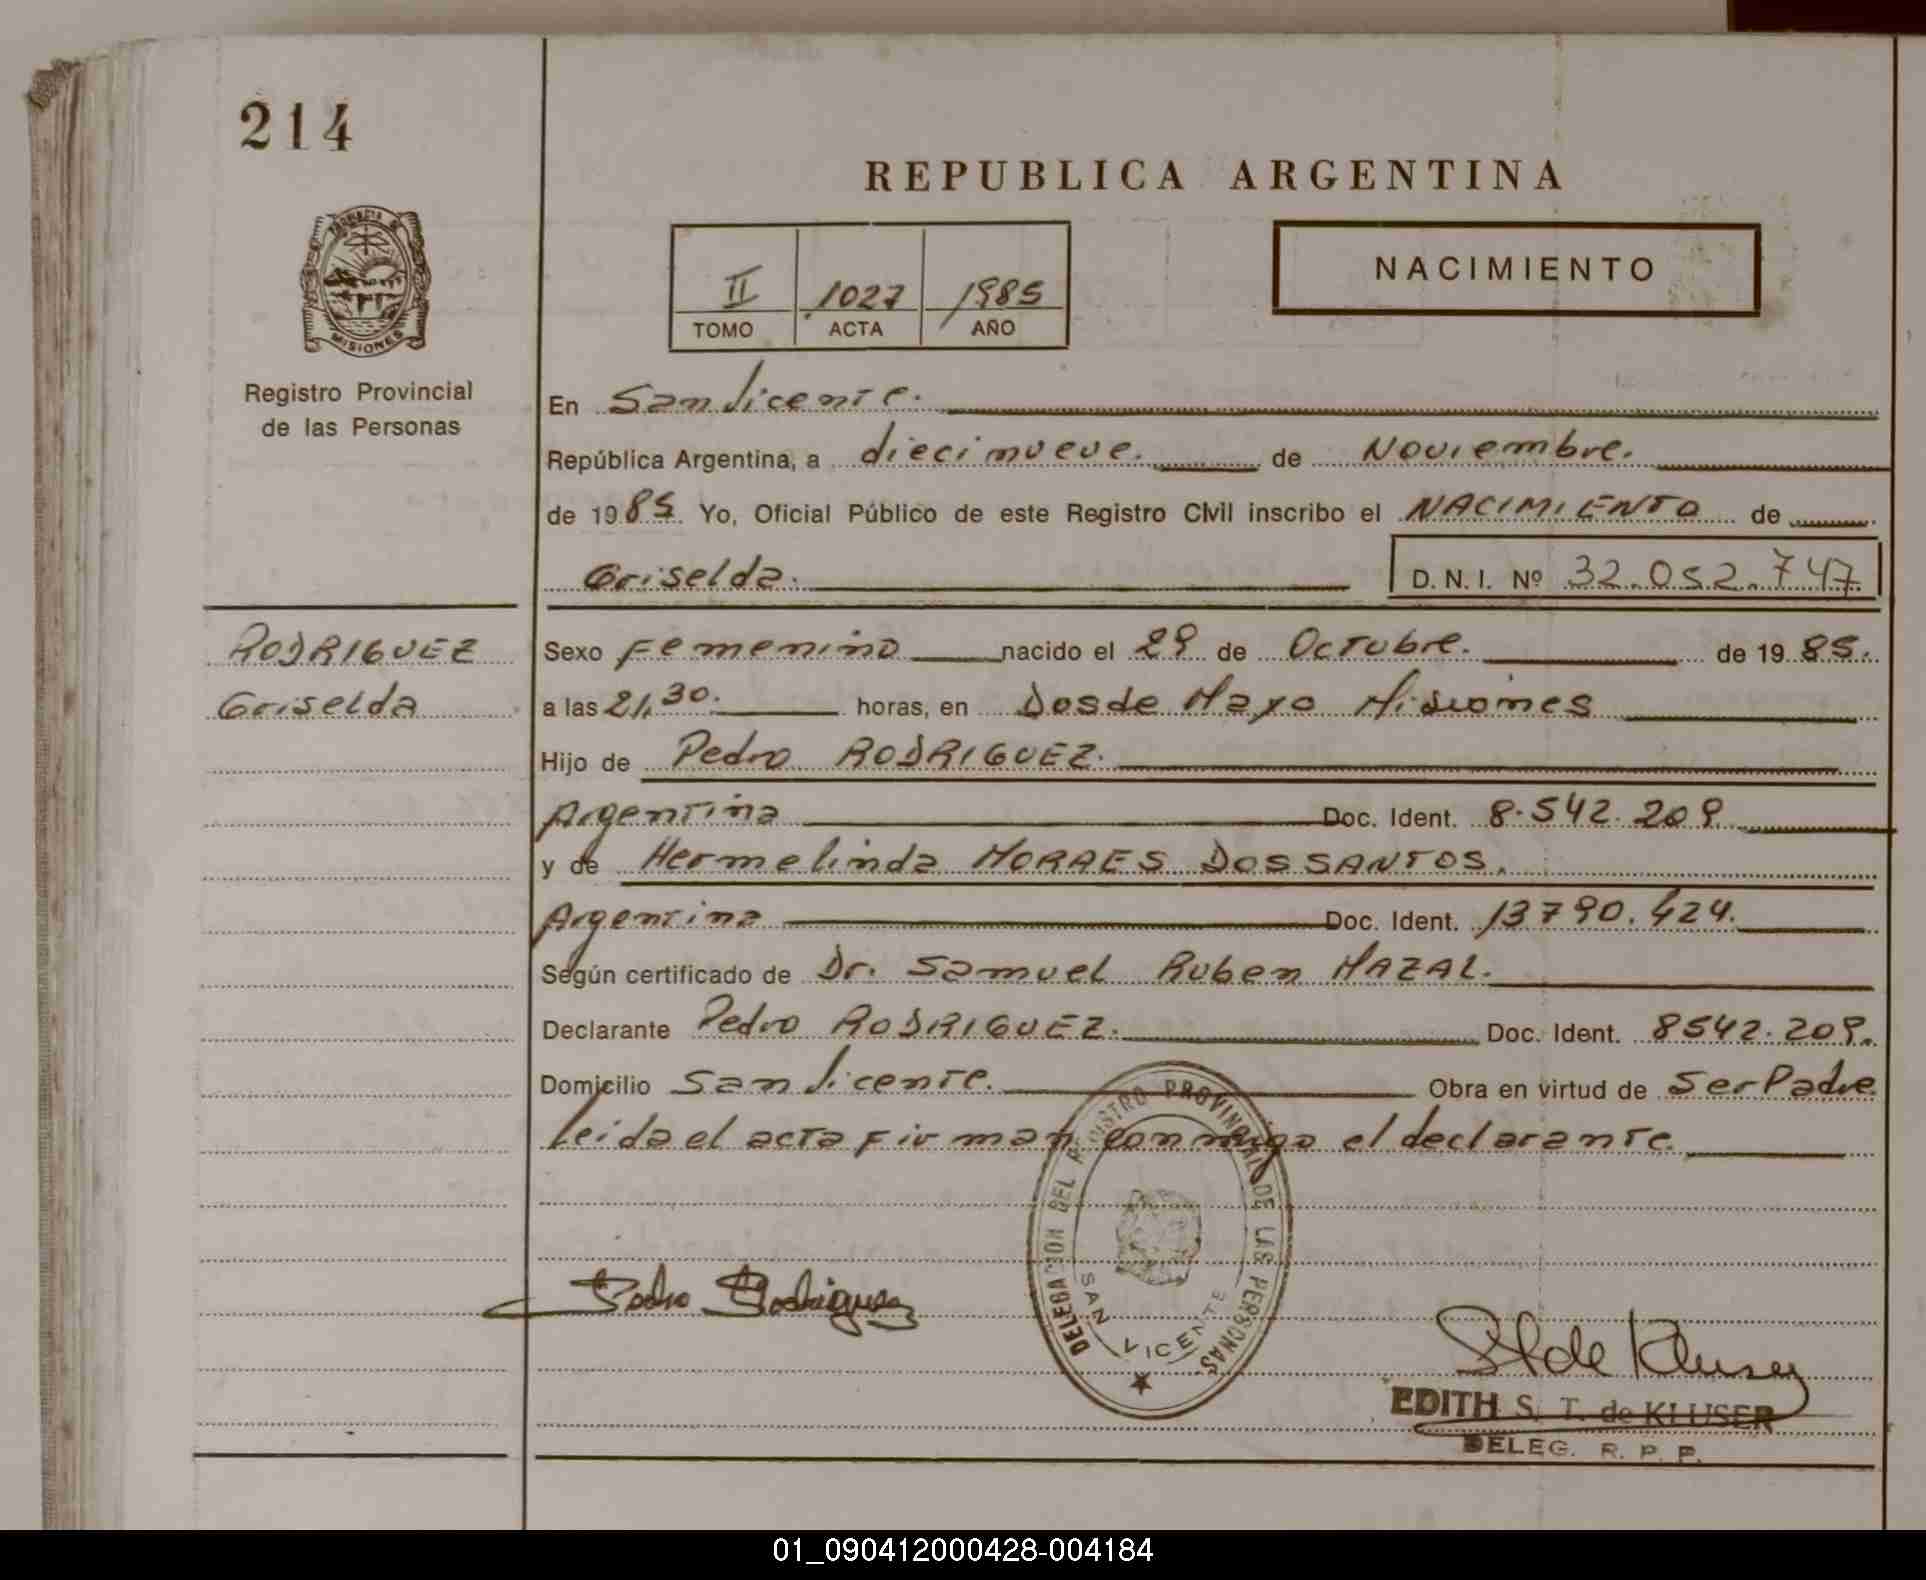 214
REPUBLICA ARGENTINA
NACIMIENTO
II 1027 1985
TOMO ACTA AÑO
MISIONES
Registro Provincial
de las Personas
En San Vicente.
República Argentina, a diecinueve. de Noviembre.
de 1985. Yo, Oficial Público de este Registro Civil inscribo el NACIMIENTO de
Griselda. D. N. I. Nº 32.052.747
RODRIGUEZ
Griselda
Sexo Femenino nacido el 29 de Octubre. de 1985.
a las 21,30. horas, en Dosde Mayo Misiones
Hijo de Pedro RODRIGUEZ.
Argentina Doc. Ident. 8.542.209.
y de Hermelinda MORAES DOSSANTOS.
Argentina Doc. Ident. 13790.424.
Según certificado de Dr. Samuel Ruben MAZAL.
Declarante Pedro RODRIGUEZ. Doc. Ident. 8542.209.
Domicilio San Vicente. Obra en virtud de Ser Padre
Leida el acta firman conmigo el declarante.
DELEGACION DEL REGISTRO PROVINCIAL DE LAS PERSONAS
SAN VICENTE
Pedro Rodriguez
de Kluser
EDITH S. T. de KLUSER
DELEG. R. P. P.
01_090412000428-004184